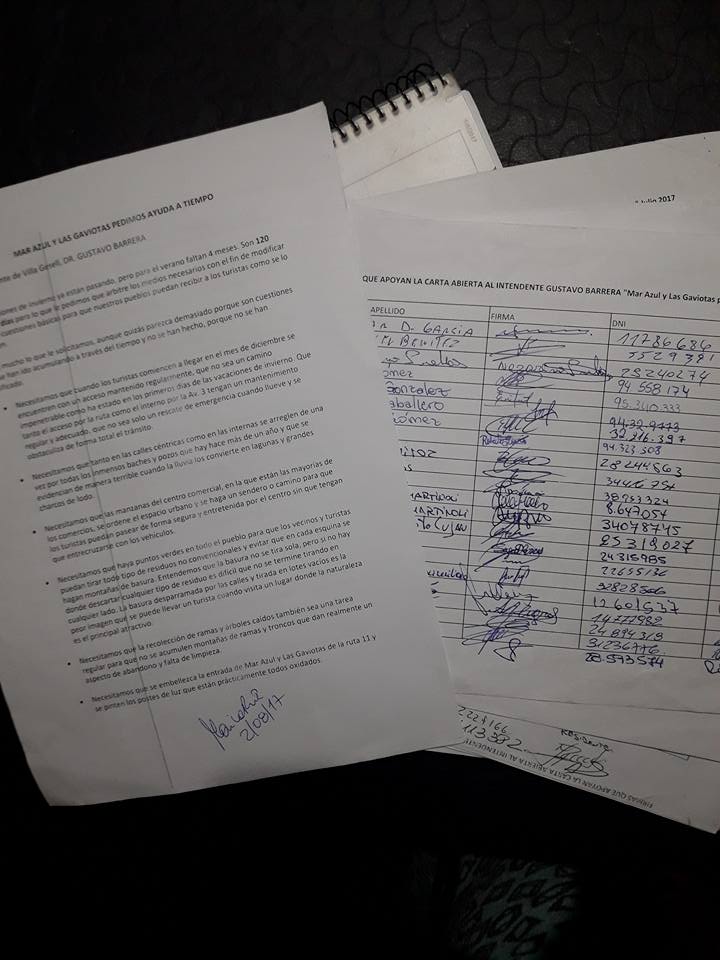 MAR AZUL Y LAS GAVIOTAS PEDIMOS AYUDA A TIEMPO
nte de Villa Gesell, DR. GUSTAVO BARRERA
ones de invierno ya están pasando, pero para el verano faltan 4 meses. Son 120
días para lo que le pedimos que arbitre los medios necesarios con el fin de modificar
cuestiones básicas para que nuestros pueblos puedan recibir a turistas como se lo
mucho lo que le solicitamos, aunque quizás parezca demasiado porque son cuestiones
e han ido acumulando a través del tiempo y no se han hecho, porque no se han
ificado.
• Necesitamos que cuando los turistas comiencen a llegar en el mes de diciembre se
encuentren con un acceso mantenido regularmente, que no sea un camino
impenetrable como ha estado en los primeros días de las vacaciones de invierno. Que
tanto el acceso por la ruta como el interno por la Av. 3 tengan un mantenimiento
regular y adecuado, que no sea solo un rescate de emergencia cuando llueve y se
obstaculiza de forma total el tránsito.
• Necesitamos que tanto en las calles céntricas como en las internas se arreglen de una
vez por todas los inmensos baches y pozos que hay hace más de un año y que se
evidencian de manera terrible cuando la lluvia los convierte en lagunas y grandes
charcos de lodo.
• Necesitamos que las manzanas del centro comercial, en la que están las mayorías de
los comercios, se ordene el espacio urbano y se haga un sendero o camino para que
los turistas puedan pasear de forma segura y entretenida por el centro sin que tengan
que entrecruzarse con los vehículos.
• Necesitamos que haya puntos verdes en todo el pueblo para que los vecinos y turistas
puedan tirar todo tipo de residuos no convencionales y evitar que en cada esquina se
hagan montañas de basura. Entendemos que la basura no se tira sola, pero si no hay
donde descartar cualquier tipo de residuo es difícil que no se termine tirando en
cualquier lado. La basura desparramada por las calles y tirada en lotes vacíos es la
peor imagen que se puede llevar un turista cuando visita un lugar donde la naturaleza
es el principal atractivo.
• Necesitamos que la recolección de ramas y árboles caídos también sea una tarea
regular para que no se acumulen montañas de ramas y troncos que dan realmente un
aspecto de abandono y falta de limpieza.
• Necesitamos que se embellezca la entrada de Mar Azul y Las Gaviotas de la ruta 11 y
se pinten los postes de luz que están prácticamente todos oxidados.
2/08/17
Julio 2017
QUE APOYAN LA CARTA ABIERTA AL INTENDENTE GUSTAVO BARRERA "Mar Azul y Las Gaviotas p
APELLIDO FIRMA DNI
D. GARCIA 11786686
BENITEZ 5529381
25240274
omez 94558174
Gonzalez 95.340.333
aballero
ómez 32.216.397
94.323.508
28244863
ARTINOLI 38953324
ARTINOLI 8.647.054
LUJAN 34078745
25319027
24315985
22655136
12601537
14777982
24894319
31236776
28.573574
2224166
Residente
FIRMAS QUE APOYAN LA CARTA ABIERTA AL INTENDENTE